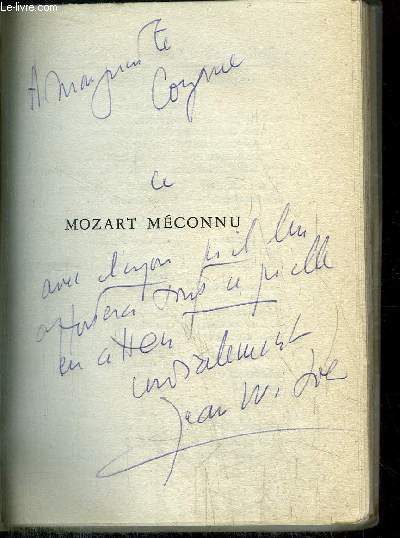 Le-livre.com
A Marguerite
ce
MOZART MÉCONNU
avec l'espoir qu'il lui
apportera tout ce qu'elle
en attend
cordialement
Jean